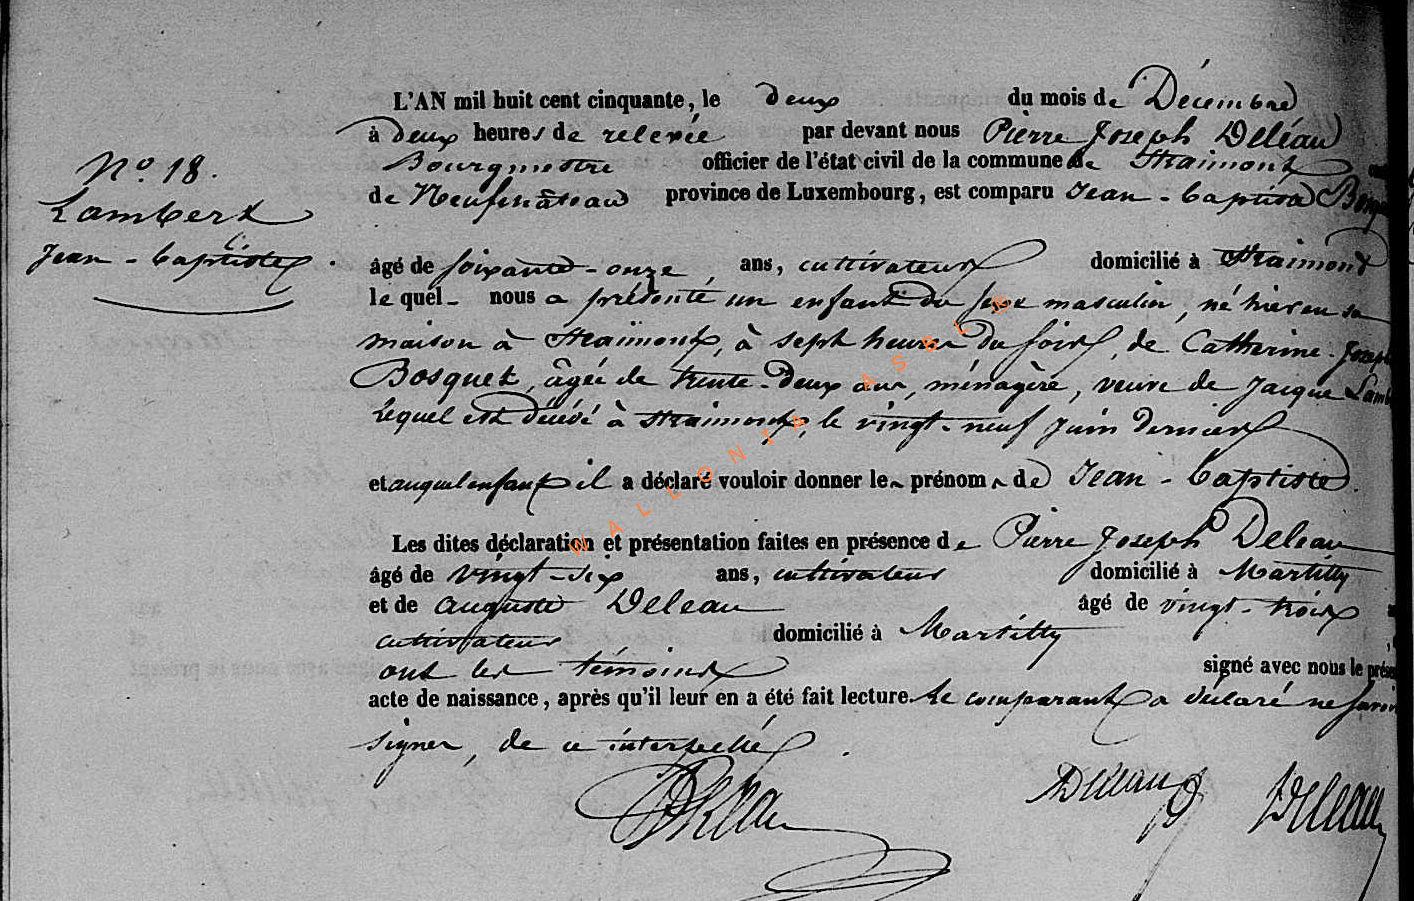 L'AN mil huit cent cinquante, le deux du mois de Décembre
à deux heures de relevée par devant nous Pierre Joseph Deléau
Bourgmestre officier de l'état civil de la commune de Straimont
de Neufchâteau province de Luxembourg, est comparu Jean-Baptiste
No. 18.
Lambert
Jean-Baptiste.
âgé de soixante-onze, ans, cultivateur domicilié à Straimont
le quel nous a présenté un enfant du sexe masculin, né hier en sa
maison à Straimont, à sept heures du soir, de Catherine Joseph
Bosquet, âgée de trente-deux ans, ménagère, veuve de Jacque Lamb
Lequel est décédé à Straimont, le vingt-neuf juin dernier
et auquel enfant il a déclaré vouloir donner les prénoms de Jean-Baptiste.
Les dites déclaration et présentation faites en présence de Pierre Joseph Deleau
âgé de vingt-six ans, cultivateur domicilié à Martilly
et de Auguste Deleau âgé de vingt-trois
cultivateur domicilié à Martilly
ont les témoins signé avec nous le prése
acte de naissance, après qu'il leur en a été fait lecture. Le comparant a déclaré ne savoir
signer, de ce interpellé.
Deleau Deleau Deleau
WALLONIA ASBL